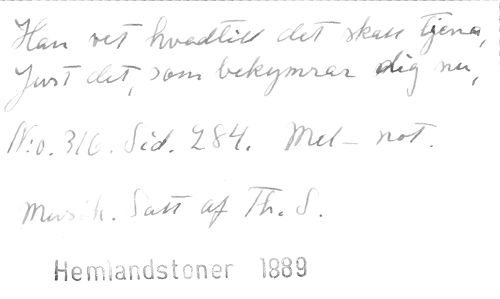 Han vet hvadtill det skall tjena,
Just det, som bekymrar dig nu,
N:o. 316. Sid. 284. Mel- not.
Musik. Satt af Th. S.
Hemlandstoner 1889